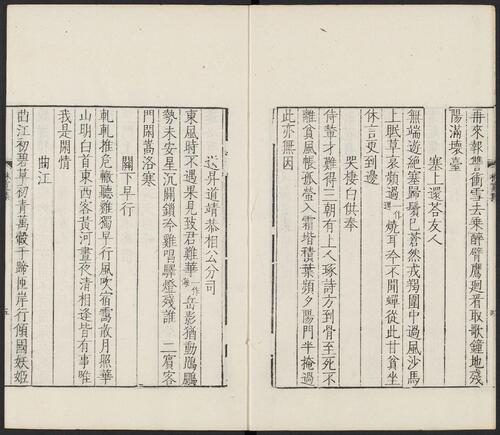 再來報雙衝雪去乘酣臂鷹廻看取歌鐘地殘
陽滿壞臺
塞上還荅友人
無端遊絶塞歸鬢已蒼然戎羯圍中過風沙馬
上眠草衰頻過一作還燒耳冷不聞蟬從此甘貧坐
休言更到邊
哭棲白供奉
侍輦才難得三朝有上人琢詩方到骨至死不
離貧風帳孤螢入霜堦積葉頻夕陽門半掩過
此亦無因
送昇道靖恭相公分司
東風時不遇果見致君難華一作海岳影猶動鵾鵬
勢未安星沉關鎖冷雞唱驛燈殘誰一二賓客
門閑嵩洛寒
關下早行
軋軋推危轍聽雞獨早行風吹宿靄散月照華
山明白首東西客黃河晝夜清相逢皆有事唯
我是閑情
曲江
曲江初碧草初青萬轂千蹄匝岸行傾國妖姬